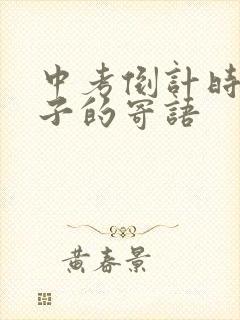 中考倒計時
子的寄語
黄春景